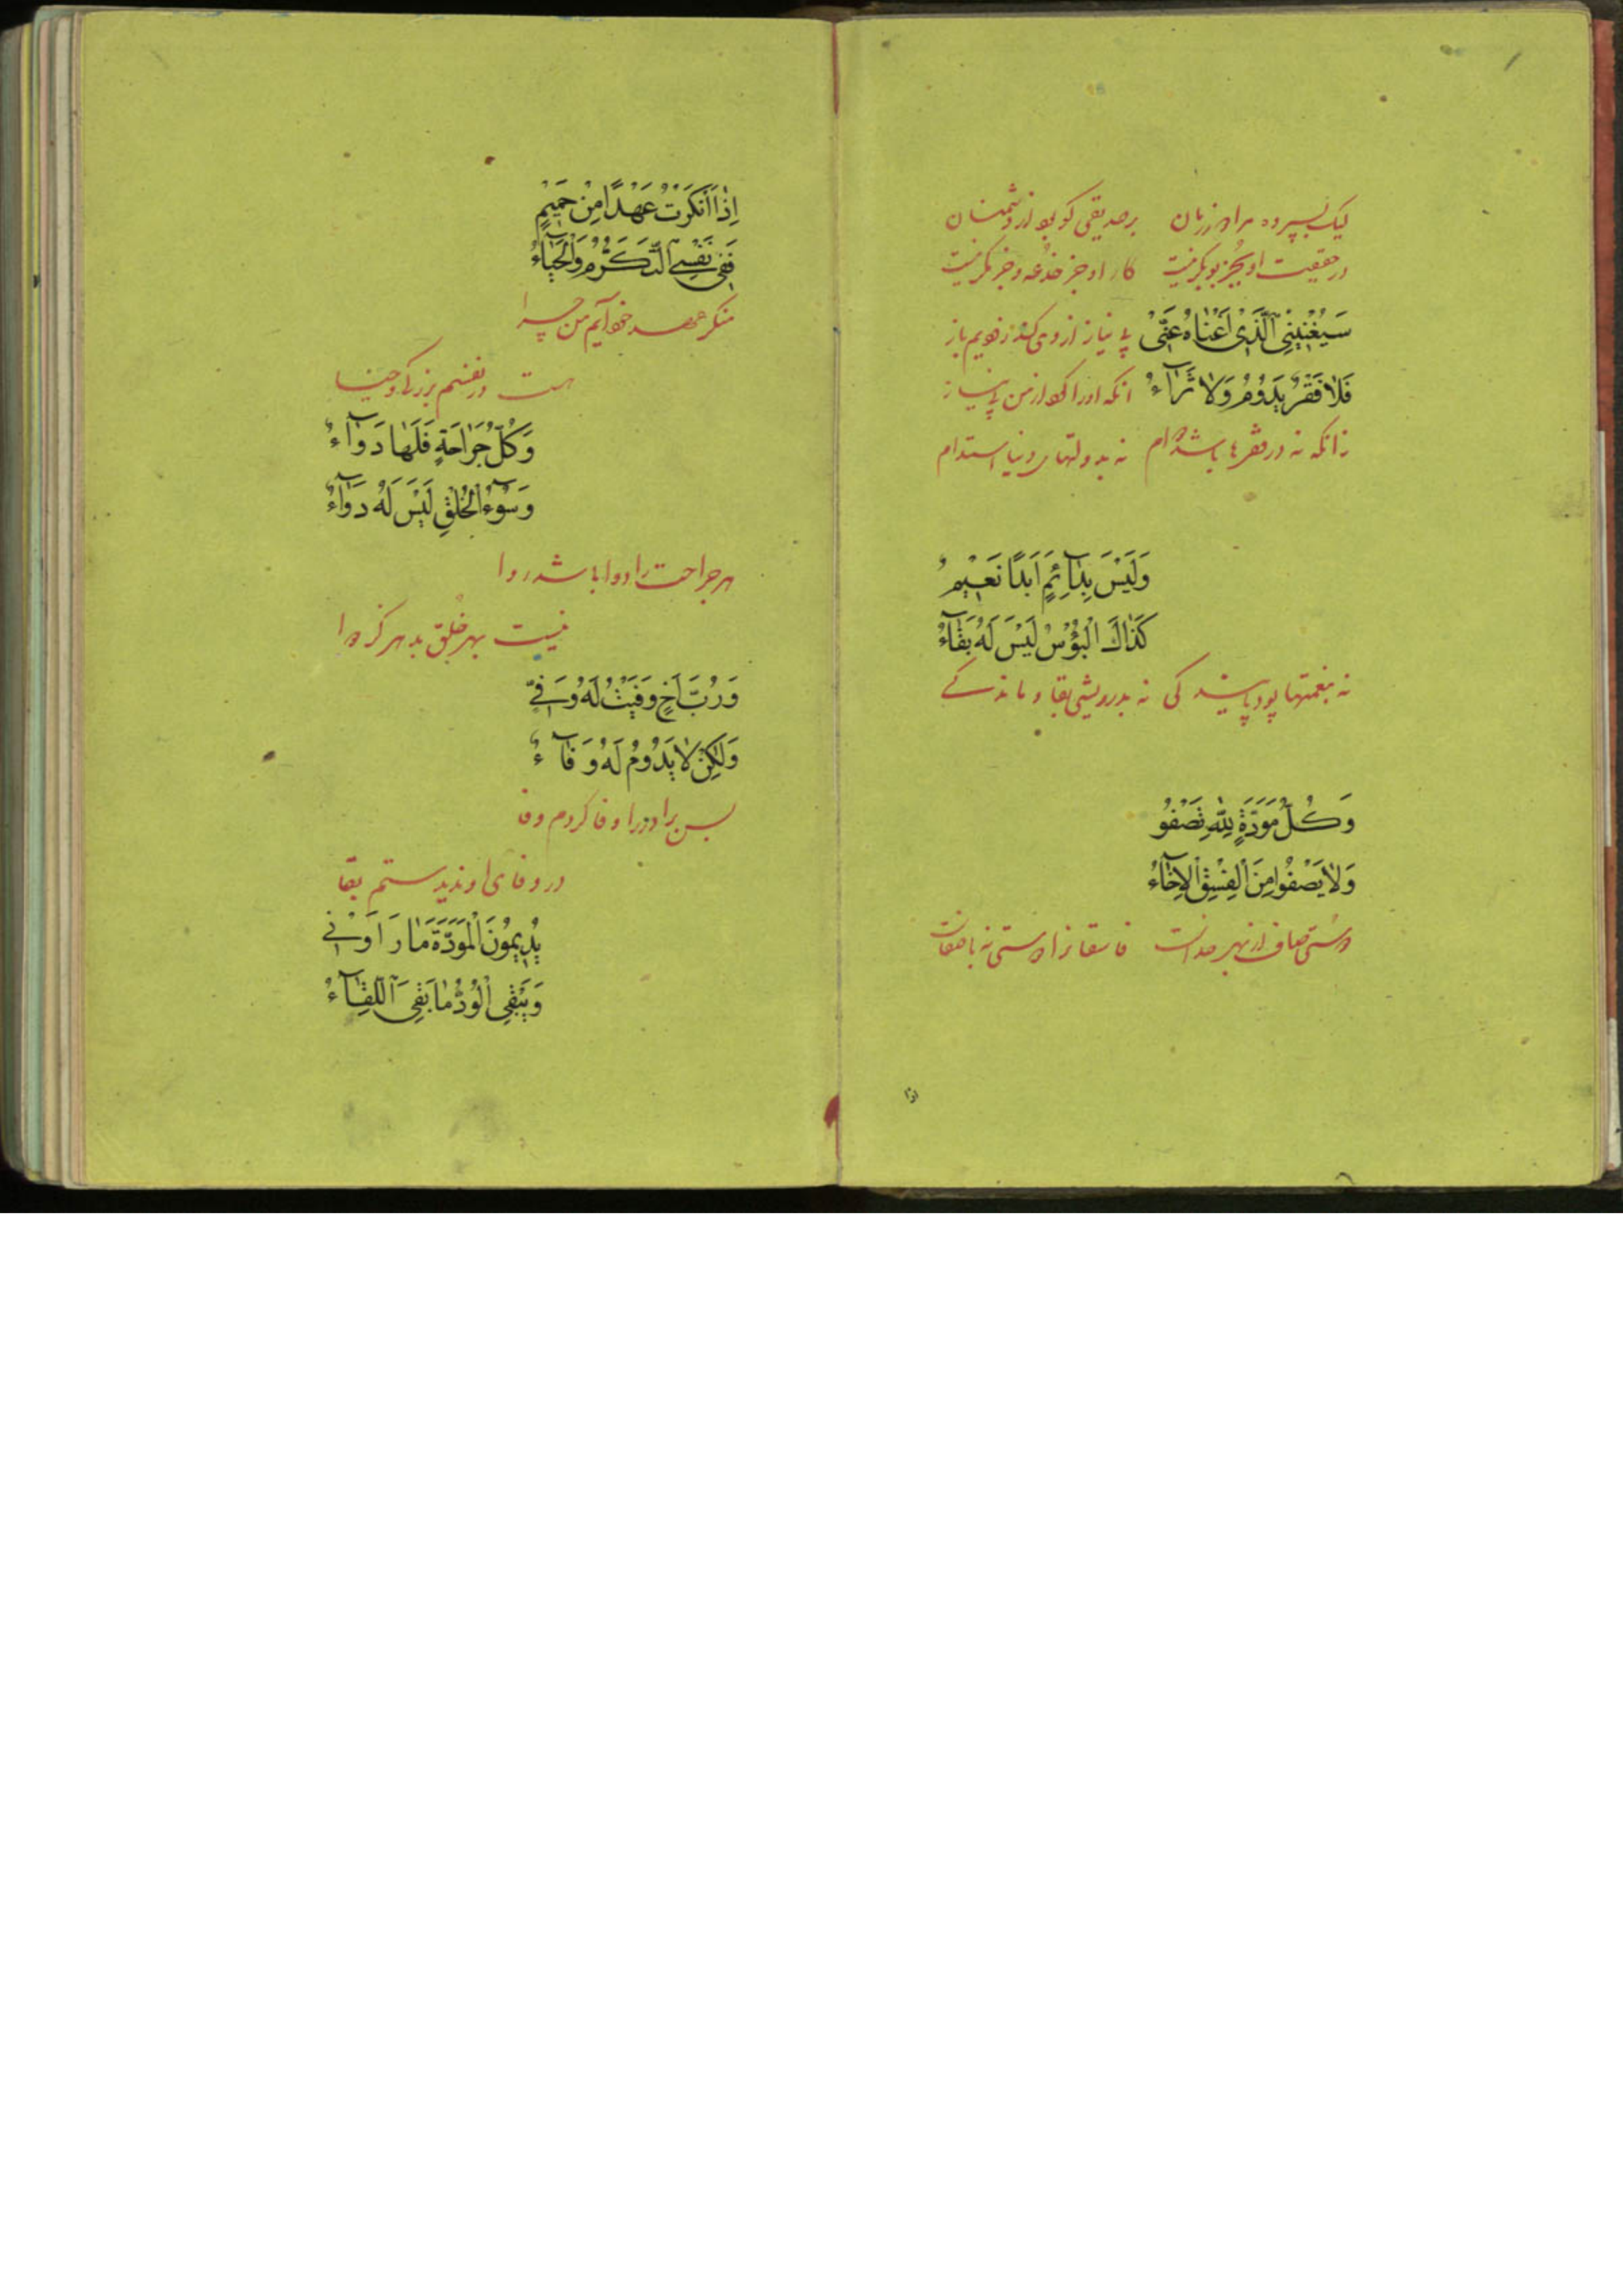 لیک بسپرده مرا در زبان بر صدیقی کو بود از دشمنان
در حقیقت او بجز بوبکر نیست کار او جز خدعه و جز مکر نیست
سَيُغْنِينِي الَّذِي اَغْنَاهُ عَنِّي بی نیاز از وی کند خویم باز
فَلَا فَقْرٌ يَدُومُ وَلَا ثَرَآءُ انکه او را کرد از من بی نیاز
زانکه نه در فقرها باشد دوام نه بدولتهای دنیا استدام
وَلَيْسَ بِدَآئِمٍ اَبَدًا نَعِيْمٌ
كَذَاكَ الْبُؤْسُ لَيْسَ لَهُ بَقَآءُ
نه بنعمتها بود پایندکی نه بدرویشی بقا و ماندکے
وَكُلُّ مَوَدَّةٍ لِلّٰهِ تَصْفُو
وَلَا يَصْفُو مِنَ الْفِسْقِ الْاِخَآءُ
دوستی صاف از بهر خداست فاسقانرا دوستی نه با صفاست
اذا
اِذَا اَنْكَرْتُ عَهْدًا مِنْ حَمِيْمٍ
فَفِي نَفْسِي التَّكَرُّمُ وَالْحَيَآءُ
منکر عهد خود آیم من چرا
هست در نفسم بزرکی و حیا
وَكُلُّ جَرَاحَةٍ فَلَهَا دَوَآءُ
وَسُوْءُ الْخُلْقِ لَيْسَ لَهُ دَوَآءُ
هر جراحت را دوا باشد روا
نیست بهر خُلق بد هرکز دوا
وَرُبَّ اَخٍ وَفَيْتُ لَهُ وَفِيٍّ
وَلٰكِنْ لَا يَدُوْمُ لَهُ وَفَآءُ
بس برادر را وفا کردم وفا
در وفای او ندیدستم بقا
يُدِيْمُوْنَ الْمَوَدَّةَ مَا رَاَوْنِي
وَيَبْقَى الْوُدُّ مَا بَقِيَ اللِّقَآءُ